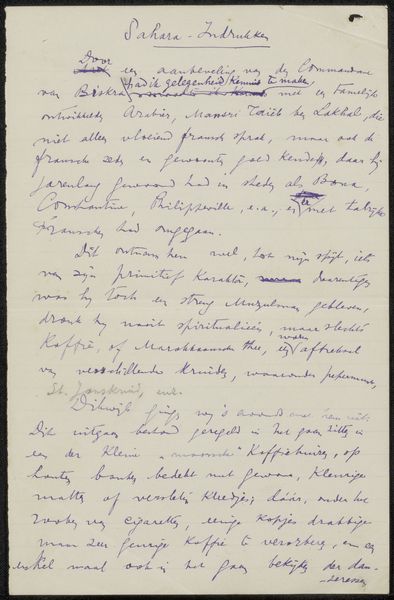 Sahara-Indrukken
Door
een aanbeveling van den Commandant
had ik gelegenheid kennis te maken,
van Biskra met een tamelijk
ontwikkelde Arabier, Mansri Taïeb ben Lakhal, die
niet alleen vloeiend fransch sprak, maar ook de
fransche zeden en gewoonten goed kende, daar hij
jarenlang gewoond had in steden als Bona,
Constantine, Philippeville, e.a., en met talrijke
Franschen had omgegaan.
Dit ontnam hem wel, tot mijn spijt, iets
van zijn primitief karakter, daarentegen
was hij toch een streng Muzulman gebleven,
dronk hij nooit spiritualieën, maar slechts
Koffie, of Marokkaansche thee, een aftreksel
van verschillende kruiden, waaronder pepermunt,
St. Janskruid, enz.
Dikwijls ging ik 's avonds met hem uit.
Dit uitgaan bestond geregeld in het gaan zitten in
een der kleine "moorsche" koffiehuizen, op
houten banken bedekt met gewone, kleurige
matten of versleten kleedjes; dáár, onder het
rooken van cigaretten, eenige kopjes drabbige
maar zeer geurige koffie te verorberen, en een
enkel maal ook in het gaan bekijken der dan-
seressen